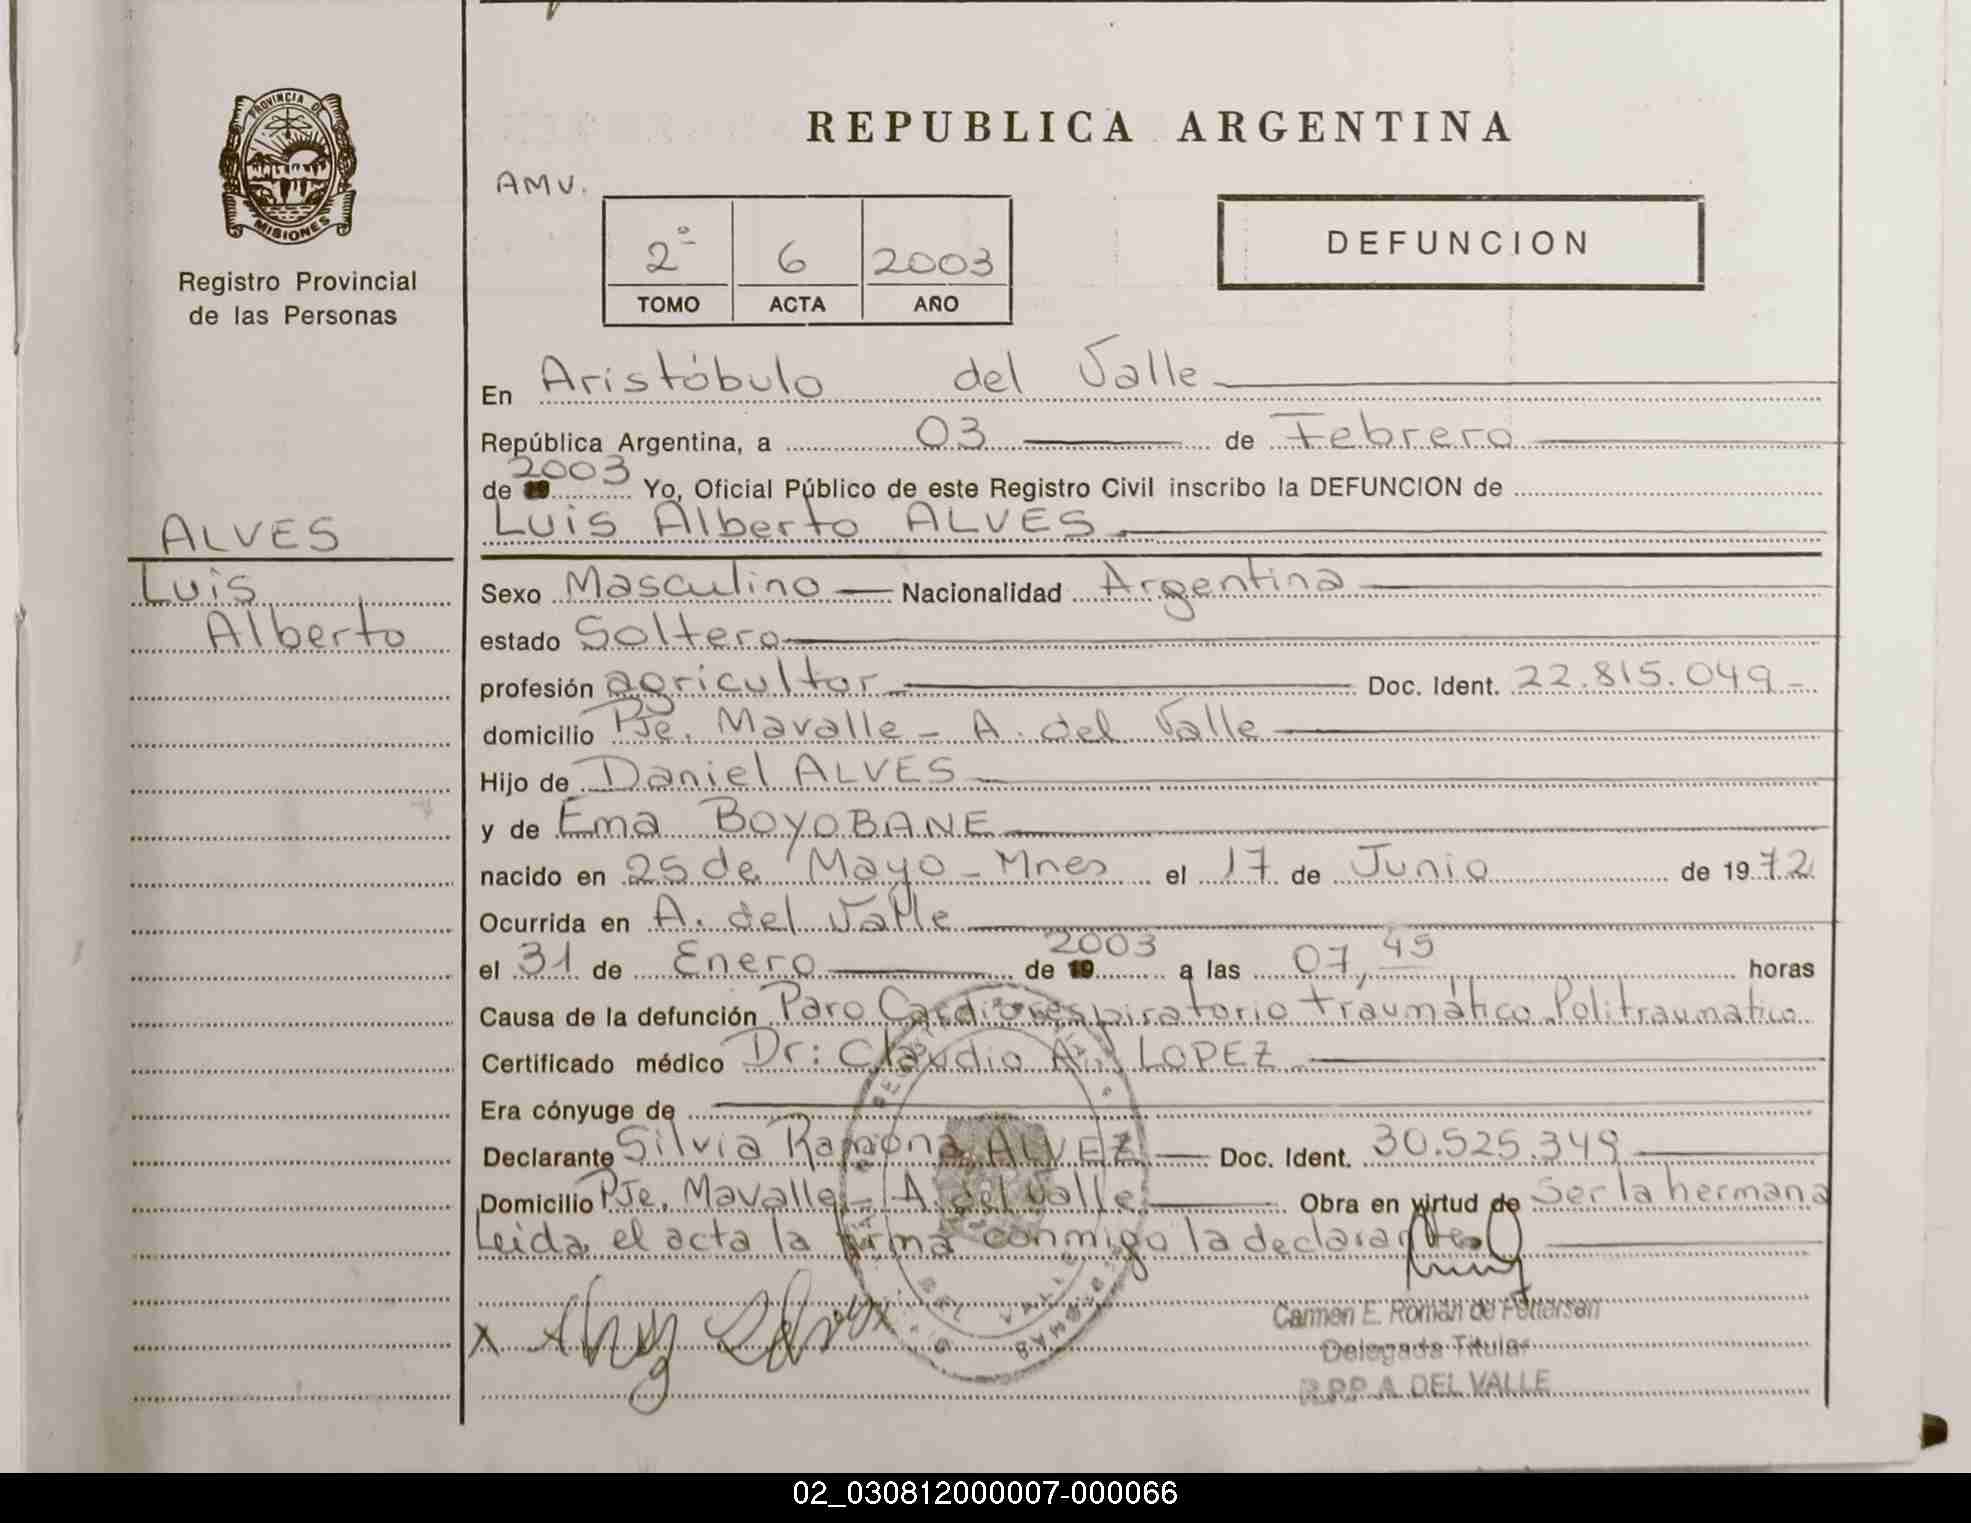 REPUBLICA ARGENTINA
PROVINCIA DE
MISIONES
Registro Provincial
de las Personas
AMV.
2º 6 2003
TOMO ACTA AÑO
DEFUNCION
En Aristóbulo del Valle
República Argentina, a 03 de Febrero
de 19 2003 Yo, Oficial Público de este Registro Civil inscribo la DEFUNCION de
Luis Alberto ALVES
ALVES
Luis
Alberto
Sexo Masculino Nacionalidad Argentina
estado Soltero
profesión agricultor Doc. Ident. 22.815.049-
domicilio PJe. Mavalle - A. del Valle
Hijo de Daniel ALVES
y de Ema BOYOBANE
nacido en 25 de Mayo - Mnes el 17 de Junio de 1972
Ocurrida en A. del Valle
el 31 de Enero de 19 2003 a las 07,45 horas
Causa de la defunción Paro Cardiorespiratorio traumático Politraumatico
Certificado médico Dr: Claudio A. LOPEZ
Era cónyuge de
Declarante Silvia Ramona ALVEZ Doc. Ident. 30.525.349
Domicilio PJe. Mavalle - A. del Valle Obra en virtud de Ser la hermana
Leida el acta la firma conmigo la declarante
DEL VALLE
Carmen E. Román de Pettersen
Delegada Titular
R.P.P. A. DEL VALLE
02_030812000007-000066